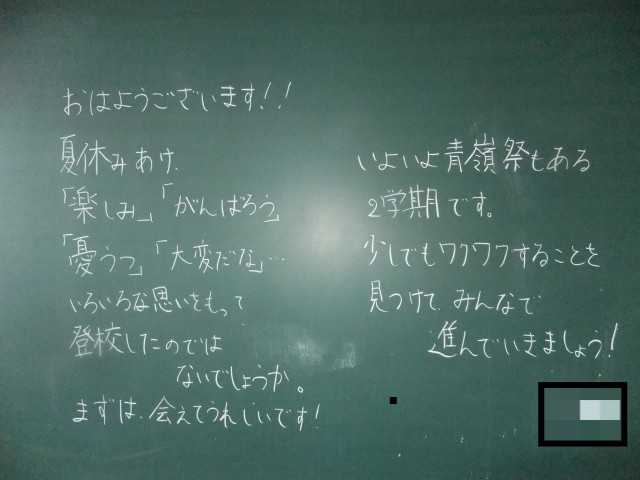 おはようございます!!
夏休みあけ、
「楽しみ」「がんばろう」
「憂うつ」「大変だな」…
いろいろな思いをもって
登校したのでは
ないでしょうか。
まずは、会えてうれしいです!
いよいよ青嶺祭もある
2学期です。
少しでもワクワクすることを
見つけて、みんなで
進んでいきましょう!